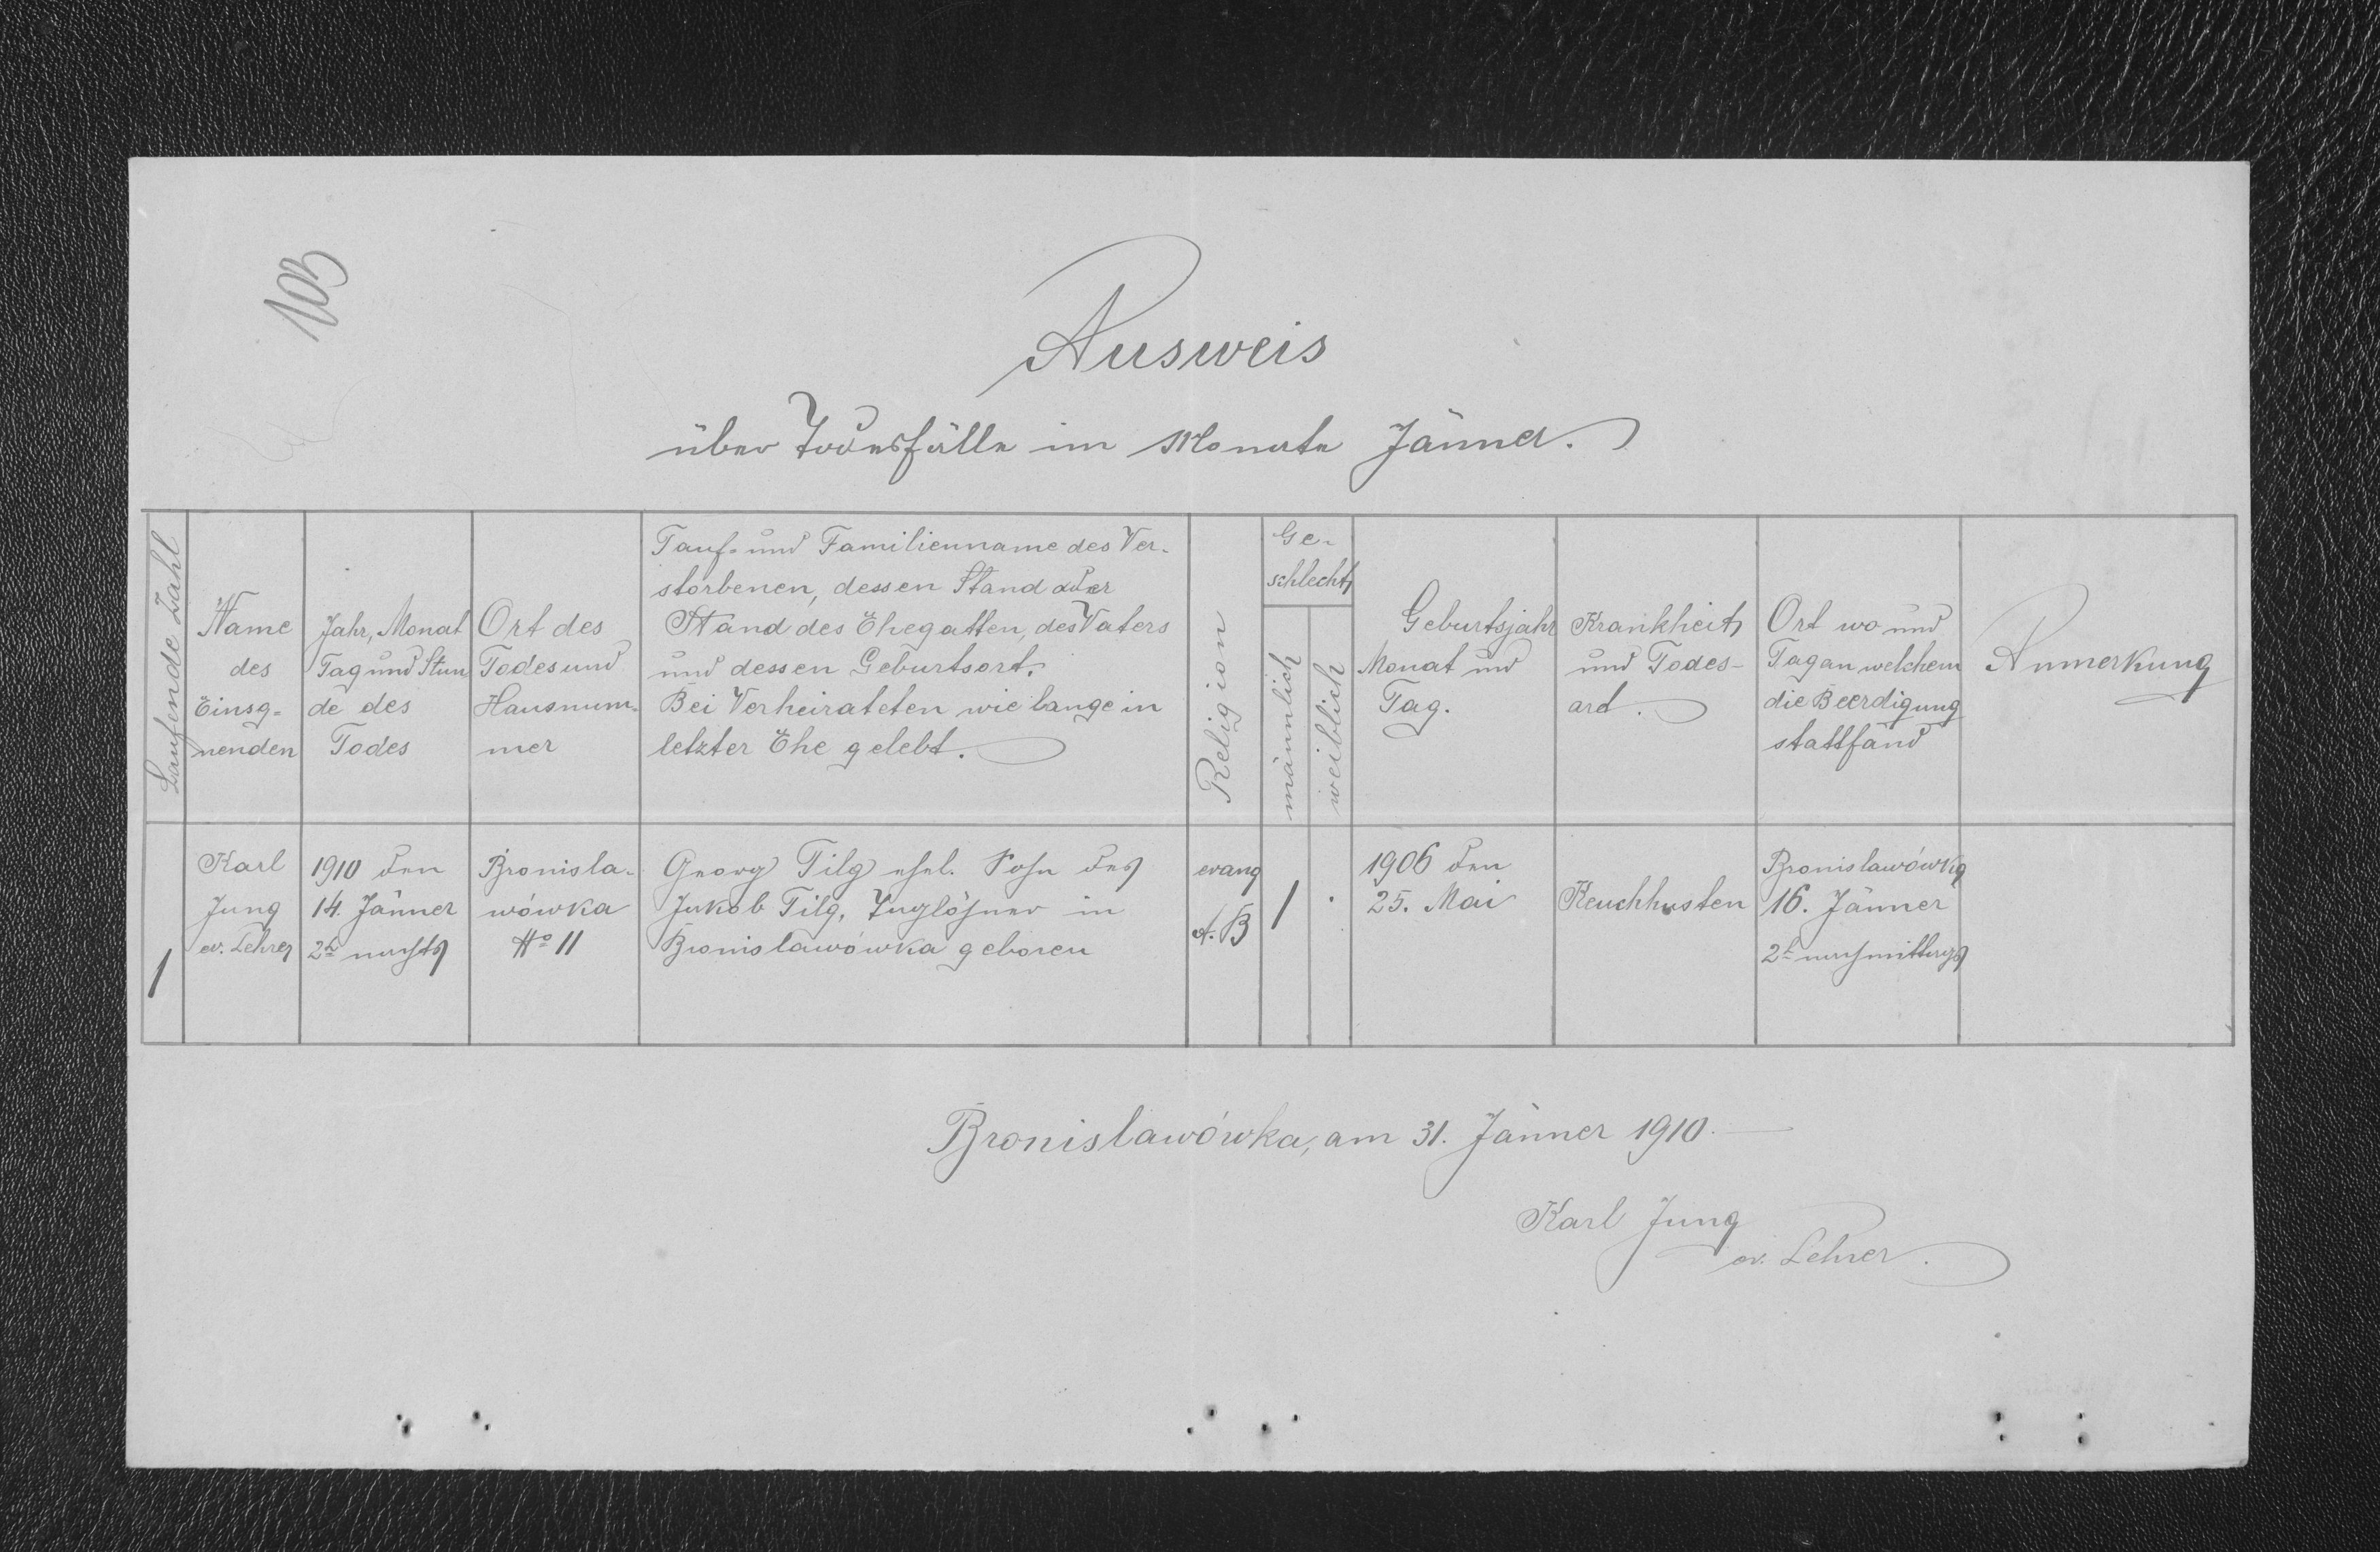 103
Ausweis
über Todesfälle im Monate Jänner.
Laufende Zahl
Name
des
Einseg-
nenden
Jahr, Monat
Tag und Stun
de des
Todes
Ort des
Todes und
Hausnum-
mer
Tauf- und Familienname des Ver-
storbenen, dessen Stand oder
Stand des Ehegatten, des Vaters
und dessen Geburtsort.
Bei Verheirateten wie lange in
letzter Ehe gelebt.
Religion
Ge-
schlecht
männlich
weiblich
Geburtsjahr
Monat und
Tag.
Krankheit
und Todes-
art.
Ort wo und
Tag an welchem
die Beerdigung
stattfand
Anmerkung
1
Karl
Jung
ev. Lehrer
1910 den
14. Jänner
2h nachts
Bronisla-
wówka
No 11
Georg Tilg ehel. Sohn des
Jakob Tilg, Taglöhner in
Bronislawówka geboren
evang
A. B
1
.
1906 den
25. Mai
Keuchhusten
Bronislawówka
16. Jänner
2h nachmittags
Bronislawówka, am 31. Jänner 1910.
Karl Jung
ev. Lehrer.